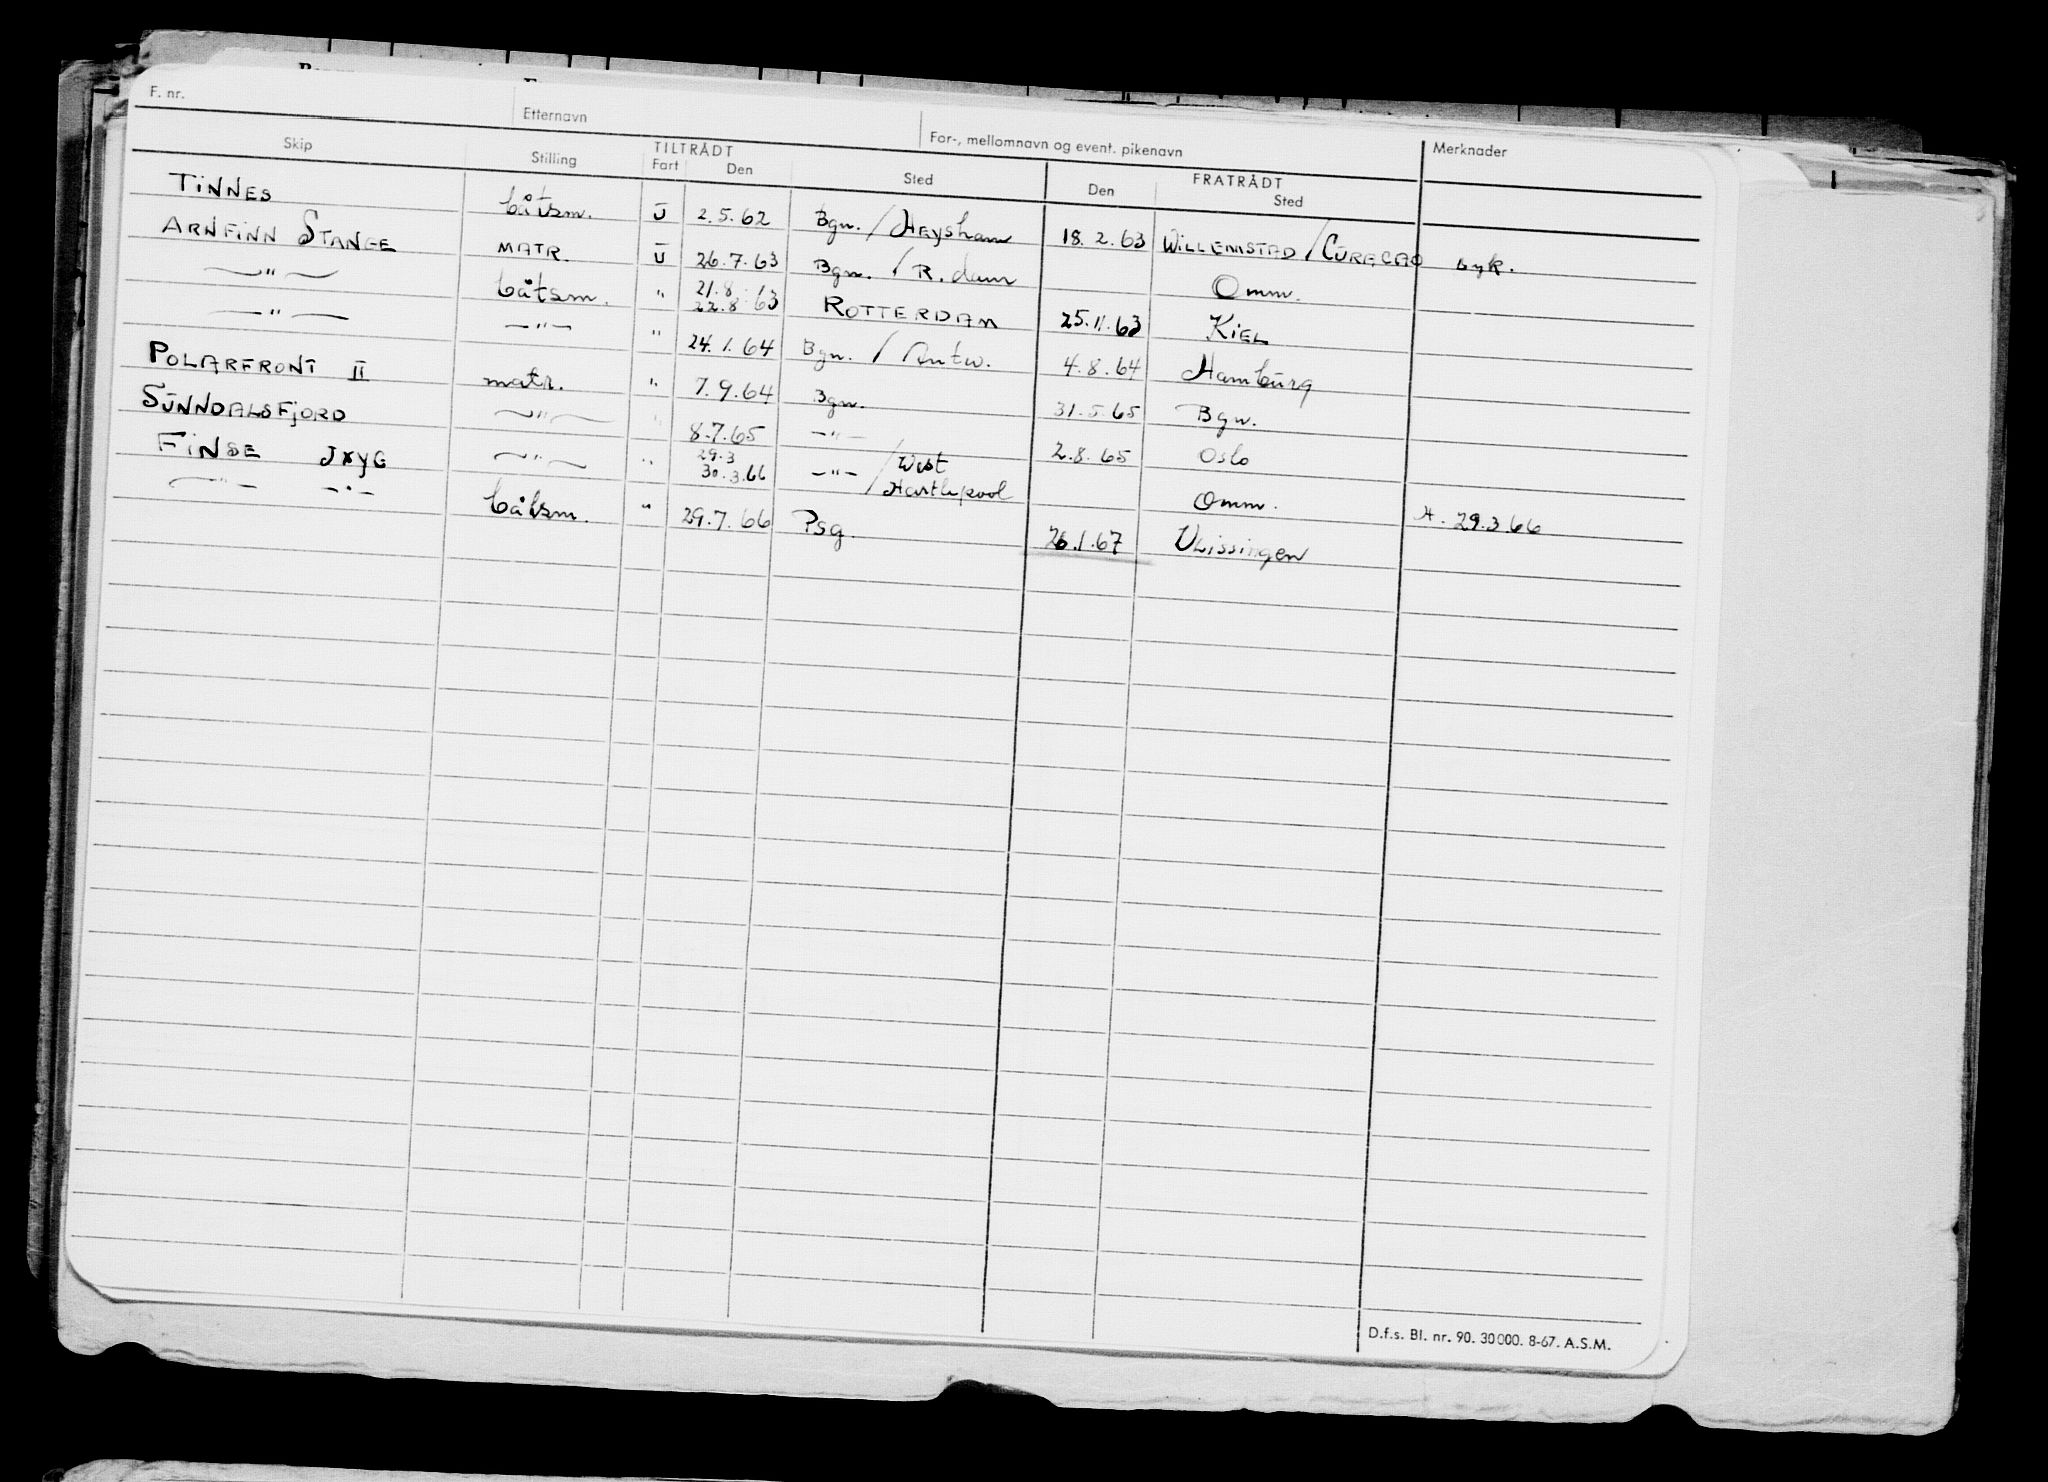 F. nr. Etternavn For-, mellomnavn og event. pikenavn Merknader
TILTRÅDT FRATRÅDT
Skip Stilling Fart Den Sted Den Sted
TINNES båtsm. U 2.5.62 Bgn. / Heysham 18.2.63 WILLEMSTAD / CURACAO syk.
ARNFINN STANGE MATR. U 26.7.63 Bgn. / R.dam Omm.
—"— båtsm. " 21.8 22.8.63 ROTTERDAM 25.11.63 KIEL
—"— —"— " 24.1.64 Bgn. / Antw. 4.8.64 Hamburg
POLARFRONT II matr. " 7.9.64 Bgn. 31.5.65 Bgn.
SUNNDALSFJORD —"— " 8.7.65 —"— 2.8.65 Oslo
FINSE JXYG —"— " 29.3 30.3.66 —"— / West Hartlepool Omm. A. 29.3.66
—"— —"— båtsm. " 29.7.66 Psg. 26.1.67 Vlissingen
D.f.s. Bl. nr. 90. 30000. 8-67. A.S.M.